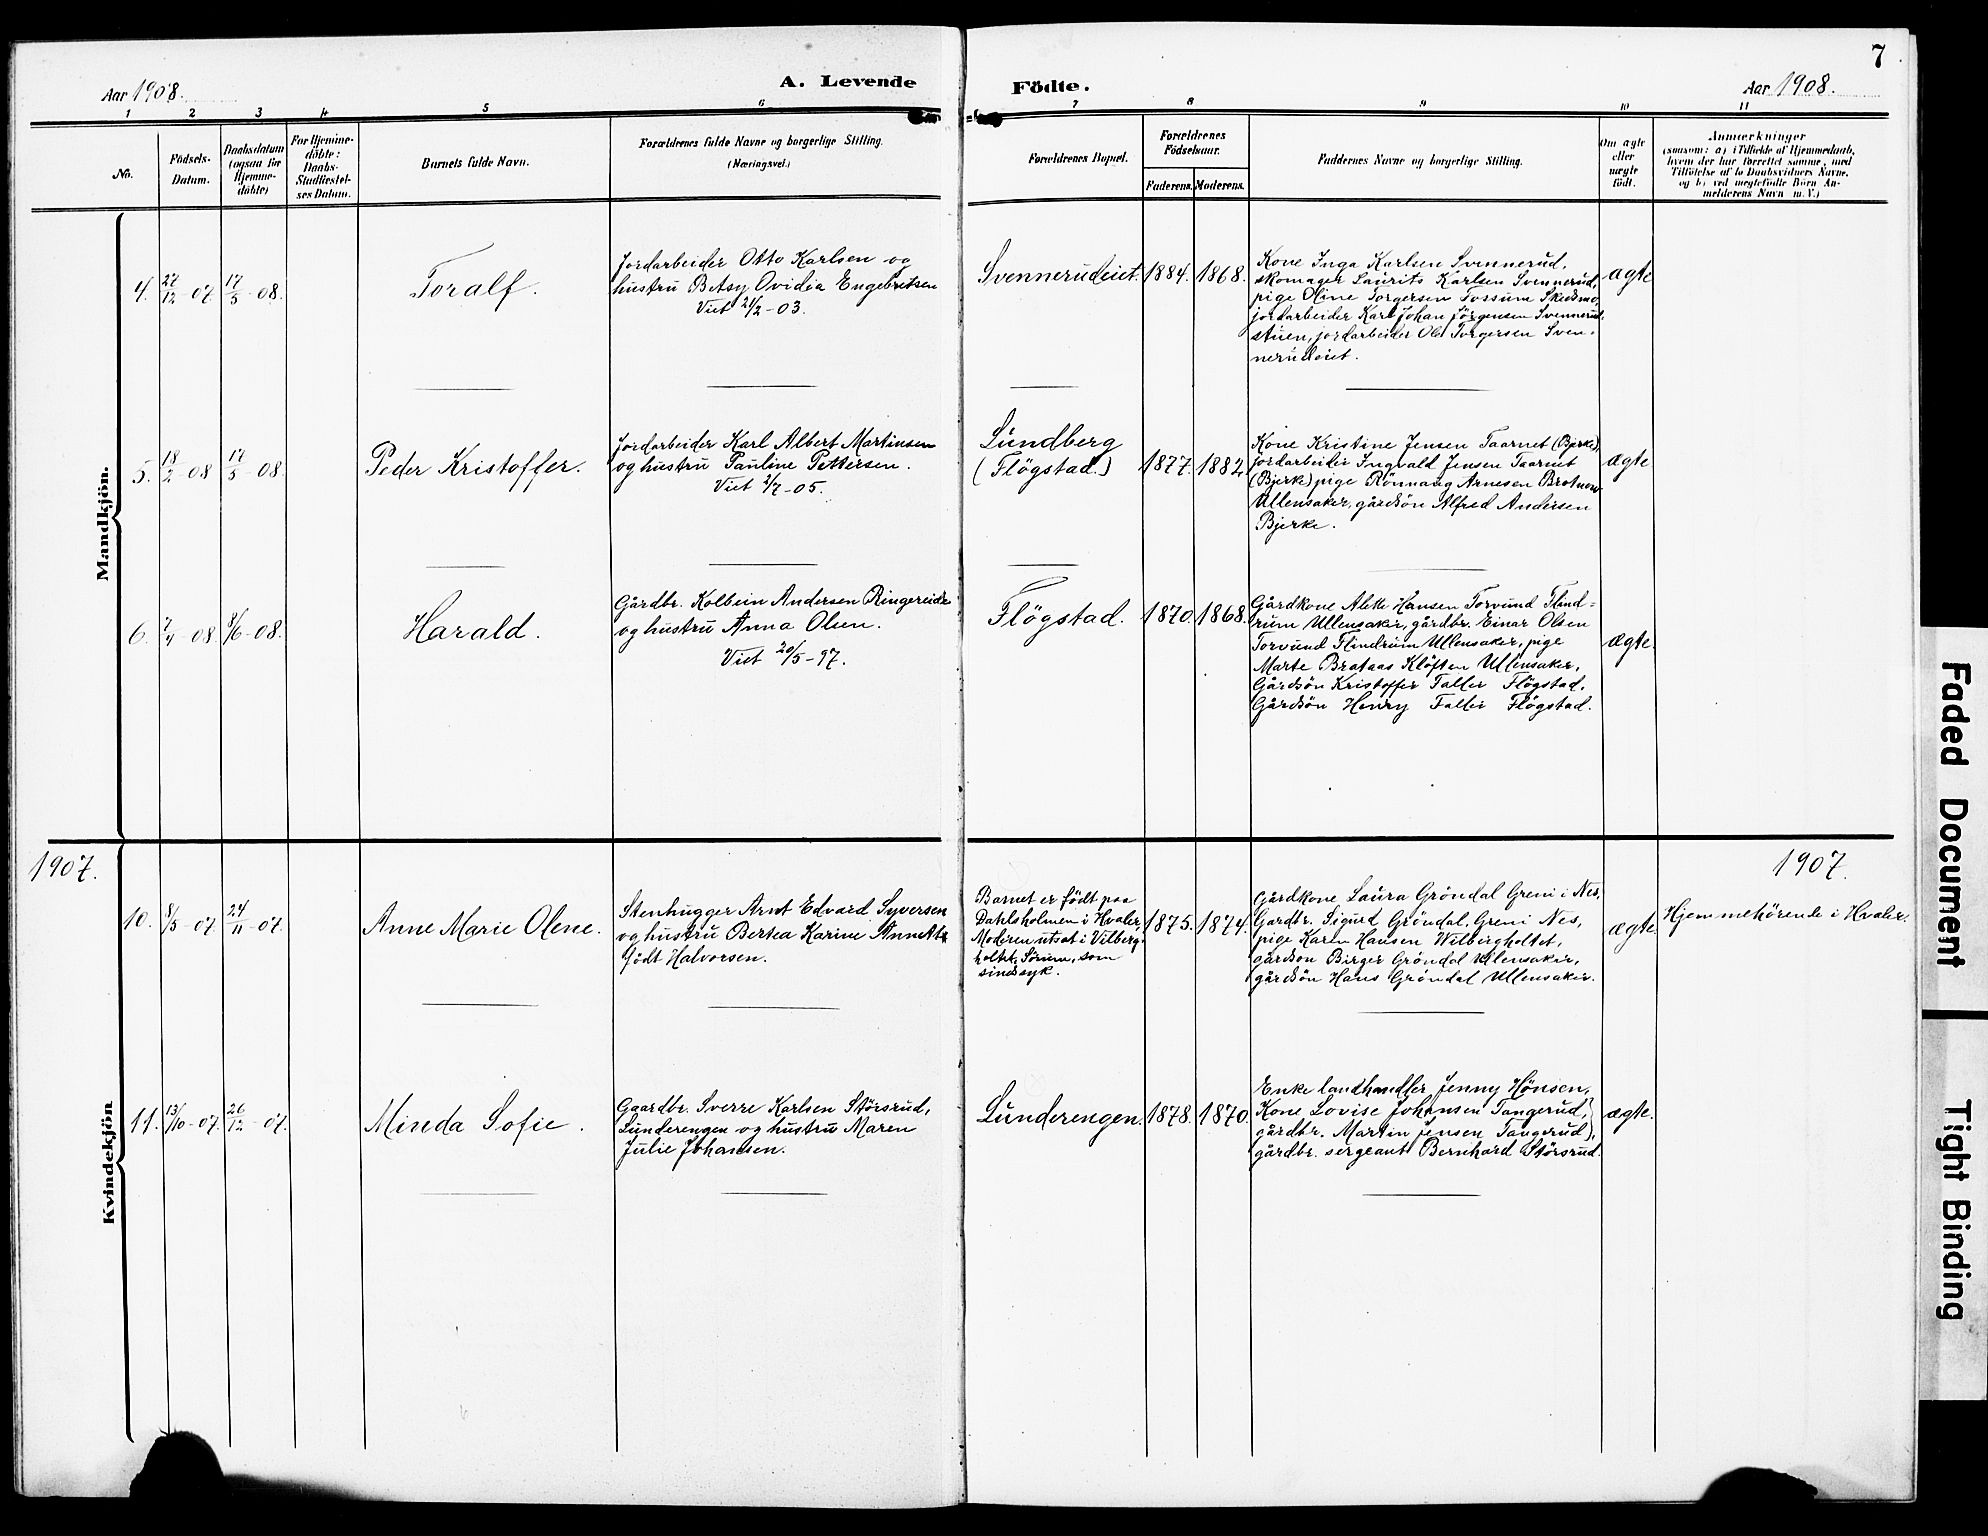 7
Aar 1908.
A. Levende
Födte.
Aar 1908.
1 2 3 4 5 6
7 8 9 10 11
No.
Födsels-
Datum.
Daabsdatum
(ogsaa for
Hjemme-
döbte)
For Hjemme-
döbte:
Daabs-
Stadfæstel-
ses Datum.
Barnets fulde Navn.
Forældrenes fulde Navne og borgerlige Stilling.
(Næringsvei.)
Forældrenes Bopæl.
Forældrenes
Födselsaar.
Faderens.
Moderens.
Faddernes Navne og borgerlige Stilling.
Om ægte
eller
uægte
födt.
Anmærkninger
(saasom: a) i Tilfælde af Hjemmedaab,
hvem der har forrettet samme, med
Tilföielse af to Daabsvidners Navne,
og b) ved uægtefödte Börn An-
melderens Navn m. V.)
Mandkjön.
4.
27/12-07.
17/5-08.
Toralf.
Jordarbeider Otto Karlsen og
hustru Betsy Ovidia Engebretsen
Viet 21/2-03.
Svennerudeiet.
1884.
1868.
Kone Inga Karlsen Svennerud,
skomager Laurits Karlsen Svennerud,
pige Oline Torgersen Tossum Skedsmo,
jordarbeider Karl Johan Jörgensen Svennerud-
stuen, jordarbeider Ole Torgersen Sven-
nerudeiet.
ægte
5.
18/2-08
17/5-08.
Peder Kristoffer.
Jordarbeider Karl Albert Martinsen
og hustru Pauline Pettersen.
Viet 2/7-05.
Lundberg
(Flögstad.)
1877.
1882
Kone Kristine Jensen Taarnet (Bjerke),
jordarbeider Ingvald Jensen Taarnet
(Bjerke) pige Rönnaug Arnesen
Ullensaker, gårdsön Alfred Andersen
Bjerke.
ægte
6.
7/4-08
8/6-08.
Harald.
Gårdbr. Kolbein Andersen Ringereide
og hustru Anna Olsen.
Viet 20/5-97.
Flögstad.
1870.
1868.
Gårdkone Alette Hansen Torvund Flind=
rum Ullensaker, gårdbr. Einar Olsen
Torvund Flindrum Ullensaker, pige
Marte Brataas Klöften Ullensaker,
Gårdsön Kristoffer Taller Flögstad.
Gårdsön Henry Taller Flögstad.
ægte.
1907.
1907.
Kvindekjön
10.
8/5-07.
24/11-07.
Anne Marie Olene.
Stenhugger Arnt Edvard Syversen
og hustru Bertea Karine Annette
födt Halvorsen.
Barnet er födt paa
Dahlsholmen i Hvaler.
Moderen utsat i Vilberg-
holtet, Sörum, som
sindssyk.
1875.
1874.
Gårdkone Laura Gröndal Greni i Nes,
Gardbr. Sigurd Gröndal, Greni Nes,
pige Karen Hansen Wilbergholtet,
gårdsön Birger Gröndal Ullensaker,
gårdsön Hans Gröndal Ullensaker.
ægte.
Hjemmehörende i Hvaler.
11.
13/10-07.
26/12-07.
Minda Sofie.
Gaardbr. Sverre Karlsen Störsrud,
Lunderengen og hustru Maren
Julie Johansen.
Lunderengen.
1878.
1870.
Enke landhandler Jenny Hönsen,
Kone Lovise Johansen Tangerud,
gårdbr. Martin Jensen Tangerud),
gårdbr. sergeant Bernhard Störsrud.
ægte.
Faded Document
Tight Binding